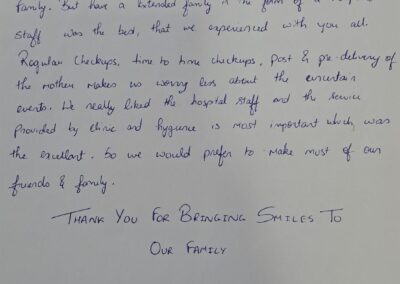 family. But have a extended family in the form of a
staff was the best, that we experienced with you all.
Regular Checkups, time to time checkups, post & pre-delivery of
the mother makes us worry less about the uncertain
events. We really liked the hospital staff and the service
provided by clinic and hygiene is most important which was
the excellent. So we would prefer to make most of our
friends & family.
THANK YOU FOR BRINGING SMILES TO
OUR FAMILY